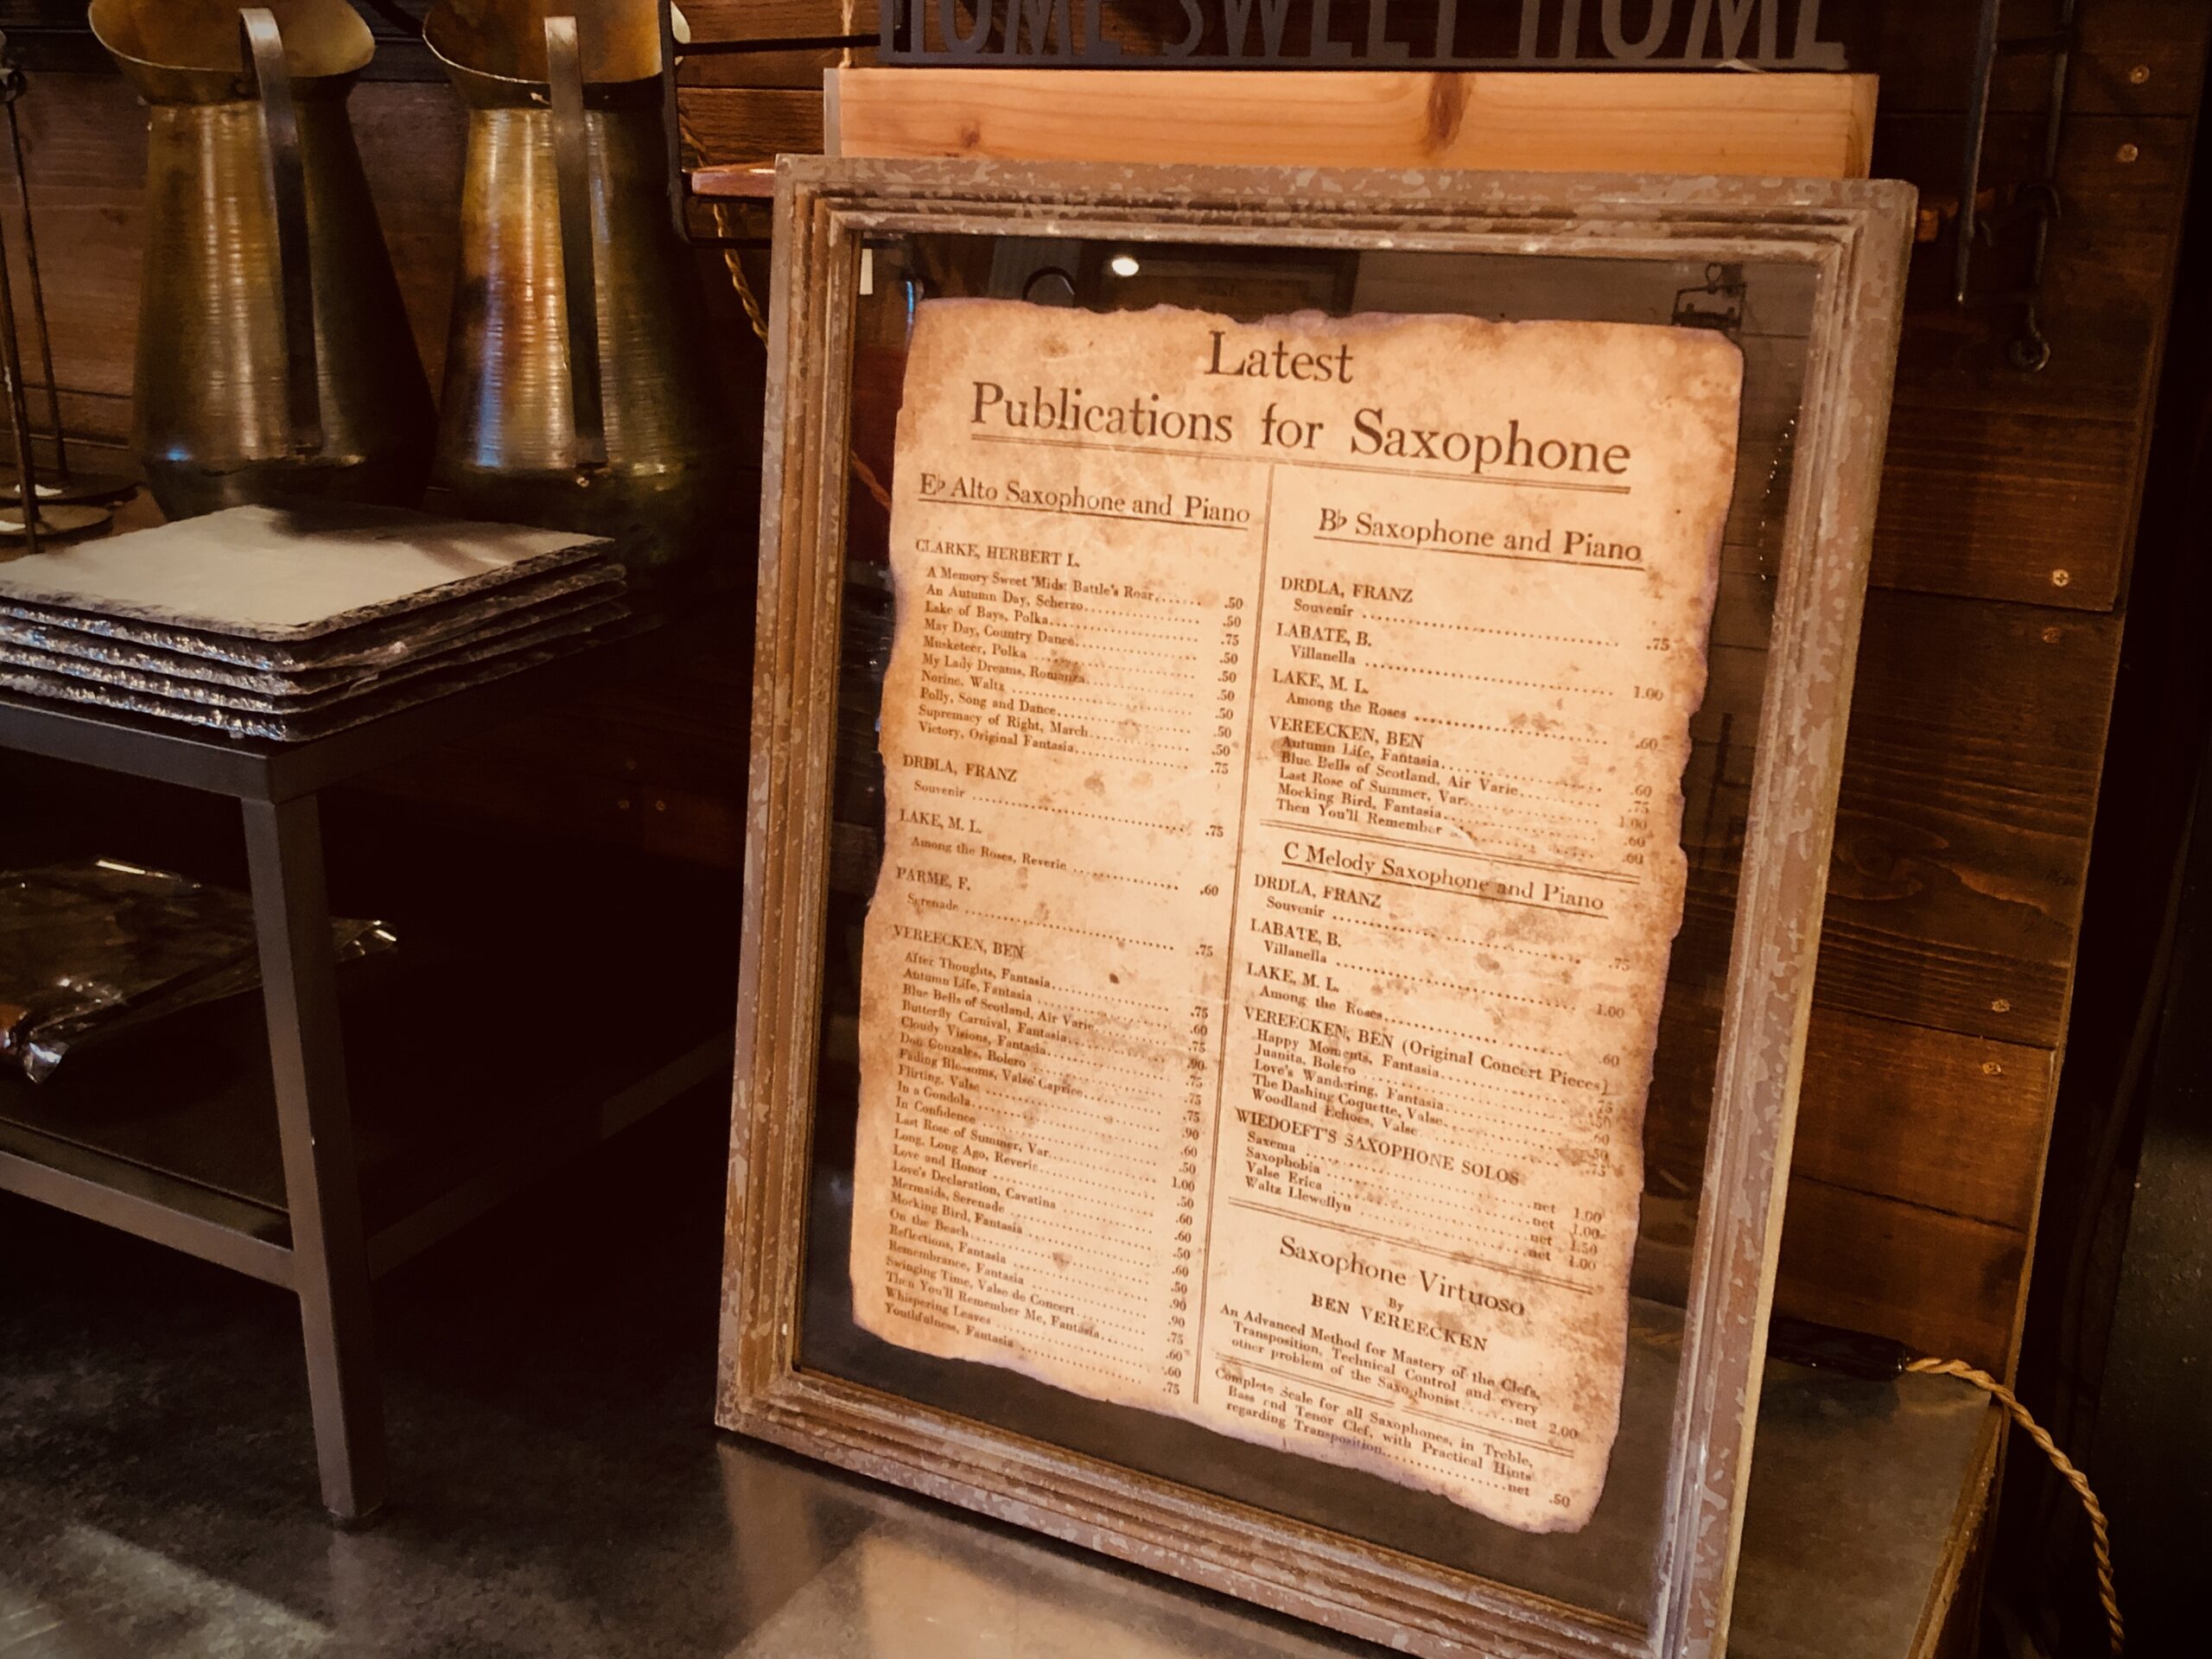 HOME SWEET HOME
Latest
Publications for Saxophone
E♭ Alto Saxophone and Piano
CLARKE, HERBERT L.
A Memory Sweet 'Mids: Battle's Roar....... .50
An Autumn Day, Scherzo.................... .50
Lake of Bays, Polka.......................... .75
May Day, Country Dance..................... .50
Musketeer, Polka ............................ .50
My Lady Dreams, Romanza.................. .50
Norine, Waltz ................................ .50
Polly, Song and Dance........................ .50
Supremacy of Right, March.................. .50
Victory, Original Fantasia.................... .75
DRDLA, FRANZ
Souvenir ...................................... .75
LAKE, M. L.
Among the Roses, Reverie .................. .60
PARME, F.
Serenade ..................................... .75
VEREECKEN, BEN
After Thoughts, Fantasia..................... .75
Autumn Life, Fantasia ....................... .60
Blue Bells of Scotland, Air Varie............ .75
Butterfly Carnival, Fantasia................. .90
Cloudy Visions, Fantasia..................... .75
Don Gonzales, Bolero ........................ .75
Fading Blossoms, Valse Caprice............. .75
Flirting, Valse ................................ .90
In a Gondola.................................. .60
In Confidence ................................ .50
Last Rose of Summer, Var.................... 1.00
Long, Long Ago, Reverie..................... .50
Love and Honor .............................. .60
Love's Declaration, Cavatina ................ .60
Mermaids, Serenade ......................... .50
Mocking Bird, Fantasia ...................... .60
On the Beach................................. .50
Reflections, Fantasia ........................ .90
Remembrance, Fantasia ..................... .90
Swinging Time, Valse de Concert........... .75
Then You'll Remember Me, Fantasia........ .60
Whispering Leaves .......................... .60
Youthfulness, Fantasia ...................... .75
B♭ Saxophone and Piano
DRDLA, FRANZ
Souvenir ...................................... .75
LABATE, B.
Villanella ..................................... 1.00
LAKE, M. L.
Among the Roses ............................ .60
VEREECKEN, BEN
Autumn Life, Fantasia....................... .60
Blue Bells of Scotland, Air Varie............ .75
Last Rose of Summer, Var................... 1.00
Mocking Bird, Fantasia...................... .60
Then You'll Remember ...................... .60
C Melody Saxophone and Piano
DRDLA, FRANZ
Souvenir ...................................... .75
LABATE, B.
Villanella ..................................... 1.00
LAKE, M. L.
Among the Roses............................. .60
VEREECKEN, BEN (Original Concert Pieces)
Happy Moments, Fantasia................... .75
Juanita, Bolero .............................. .50
Love's Wandering, Fantasia................. .60
The Dashing Coquette, Valse................ .50
Woodland Echoes, Valse .................... .75
WIEDOEFT'S SAXOPHONE SOLOS
Saxema ................................ net 1.00
Saxophobia ............................ net 1.00
Valse Erica ............................ net 1.50
Waltz Llewellyn ....................... net 1.00
Saxophone Virtuoso
By
BEN VEREECKEN
An Advanced Method for Mastery of the Clefs,
Transposition, Technical Control and every
other problem of the Saxophonist........net 2.00
Complete Scale for all Saxophones, in Treble,
Bass and Tenor Clef, with Practical Hints
regarding Transposition...................net .50